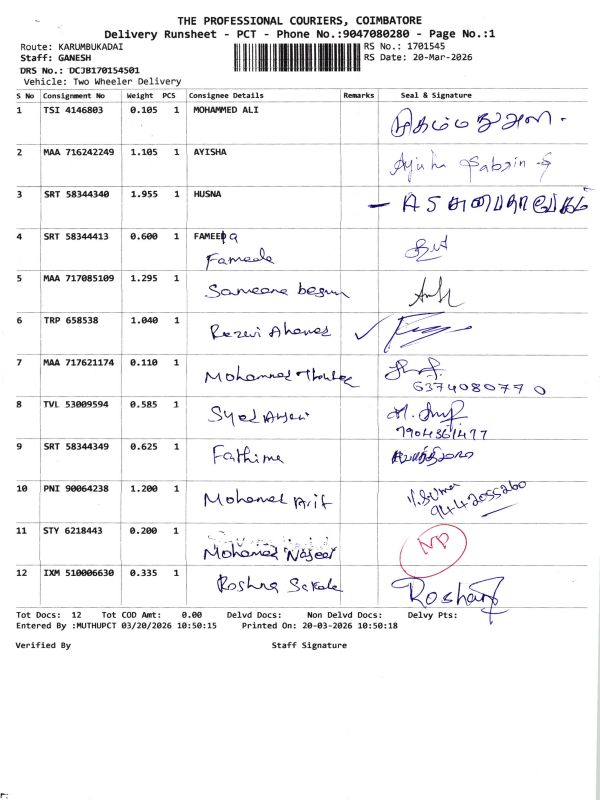 THE PROFESSIONAL COURIERS, COIMBATORE
Delivery Runsheet - PCT - Phone No.:9047080280 - Page No.:1
Route: KARUMBUKADAI RS No.: 1701545
Staff: GANESH RS Date: 20-Mar-2026
DRS No.: DCJB170154501
Vehicle: Two Wheeler Delivery
S No Consignment No Weight PCS Consignee Details Remarks Seal & Signature
1 TSI 4146803 0.105 1 MOHAMMED ALI
2 MAA 716242249 1.105 1 AYISHA Ayisha Sabrin
3 SRT 58344340 1.955 1 HUSNA
4 SRT 58344413 0.600 1 FAMEEDA
Fameela
5 MAA 717085109 1.295 1 Sameena begum
6 TRP 658538 1.040 1 Rezevi Ahamed
7 MAA 717621174 0.110 1 Mohammed
6374080770
8 TVL 53009594 0.585 1 Syed
7904361477
9 SRT 58344349 0.625 1 Fathima
10 PNI 90064238 1.200 1 Mohamed Arif
9442055260
11 STY 6218443 0.200 1 Mohamed Najeer NP
12 IXM 510006630 0.335 1 Roshna Sakala Roshan
Tot Docs: 12 Tot COD Amt: 0.00 Delvd Docs: Non Delvd Docs: Delvy Pts:
Entered By :MUTHUPCT 03/20/2026 10:50:15 Printed On: 20-03-2026 10:50:18
Verified By Staff Signature